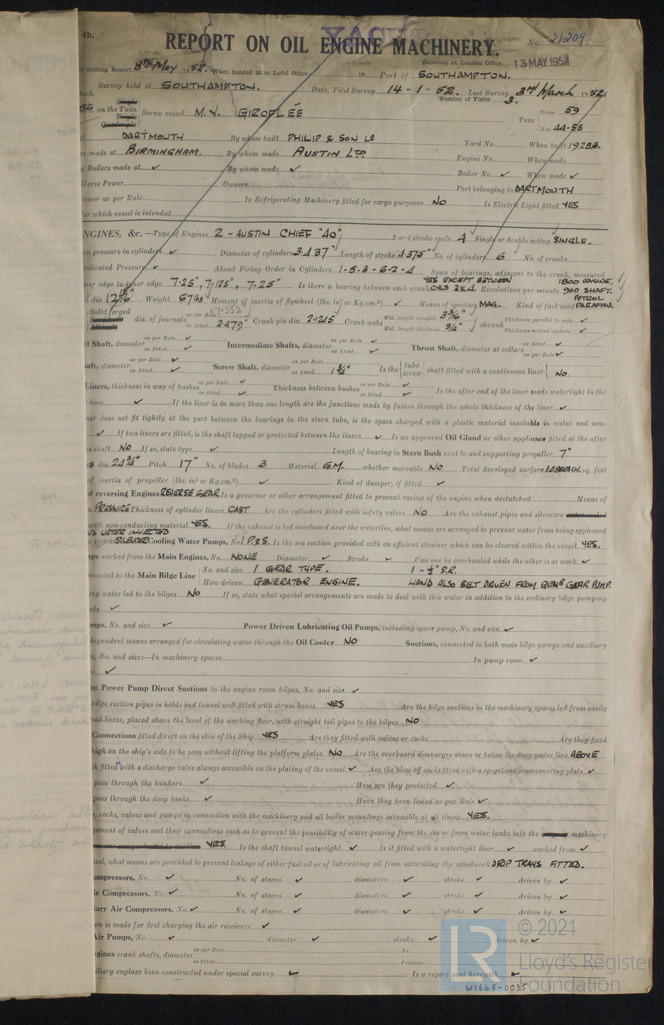 4b.
YACHT
REPORT ON OIL ENGINE MACHINERY.
No. 21209
Received at London Office 13 MAY 1952
writing Report 8TH May 1952. When handed in at Local Office 19 Port of SOUTHAMPTON.
Survey held at SOUTHAMPTON. Date, First Survey 14-1-52. Last Survey 3rd March 1952
Number of Visits 3.
on the Single Twin Triple Quadruple Screw vessel M.Y. GIROFLÉE Tons Gross 59 Net 44.55
DARTMOUTH By whom built PHILIP & SON LD Yard No. When built 1928
s made at BIRMINGHAM. By whom made AUSTIN LTD Engine No. When made
Boilers made at ✓ By whom made ✓ Boiler No. ✓ When made ✓
Horse Power Owners Port belonging to DARTMOUTH
Power as per Rule Is Refrigerating Machinery fitted for cargo purposes NO Is Electric Light fitted YES
for which vessel is intended
ENGINES, &c.—Type of Engines 2 - AUSTIN CHIEF "40" 2 or 4 stroke cycle 4 Single or double acting SINGLE.
pressure in cylinders ✓ Diameter of cylinders 3.437" Length of stroke 4.375" No. of cylinders 6 No. of cranks
Indicated Pressure ✓ Ahead Firing Order in Cylinders 1-5-3-6-2-4 Span of bearings, adjacent to the crank, measured
inner edge to inner edge 7.25", 7.125", 7.25" Is there a bearing between each crank YES EXCEPT BETWEEN CYLS 3&4 Revolutions per minute 1800 ENGINE, 900 SHAFT.
Weight 67 lbs Moment of inertia of flywheel (lbs. in² or Kg.cm²) ✓ Means of ignition MAG. Kind of fuel used PETROL PARAFFIN.
Solid forged dia. of journals as per Rule as fitted 2.479" Crank pin dia. 2.1245 Crank webs Mid. length breadth 3 3/16" Mid. length thickness 3/4" shrunk Thickness parallel to axis Thickness around eyehole ✓
Shaft, diameter as per Rule as fitted ✓ Intermediate Shafts, diameter as per Rule as fitted ✓ Thrust Shaft, diameter at collars as per Rule as fitted ✓
Screw Shaft, diameter as per Rule as fitted 1 3/4" Is the tube screw shaft fitted with a continuous liner NO.
Liners, thickness in way of bushes as per Rule as fitted ✓ Thickness between bushes as per Rule as fitted ✓ Is the after end of the liner made watertight in the
boss ✓ If the liner is in more than one length are the junctions made by fusion through the whole thickness of the liner ✓
does not fit tightly at the part between the bearings in the stern tube, is the space charged with a plastic material insoluble in water and non-
✓ If two liners are fitted, is the shaft lapped or protected between the liners ✓ Is an approved Oil Gland or other appliance fitted at the after
shaft NO If so, state type ✓ Length of bearing in Stern Bush next to and supporting propeller 7"
dia. 24 3/4" Pitch 17" No. of blades 3 Material G.M. whether moveable NO Total developed surface sq. feet
of inertia of propeller (lbs. in² or Kg.cm²) ✓ Kind of damper, if fitted ✓
reversing Engines REVERSE GEAR Is a governor or other arrangement fitted to prevent racing of the engine when declutched Means of
PRESSURE Thickness of cylinder liners CAST Are the cylinders fitted with safety valves NO Are the exhaust pipes and silencers
with non-conducting material YES. If the exhaust is led overboard near the waterline, what means are arranged to prevent water from being syphoned
WATER INJECTED SILENCER Cooling Water Pumps, No. 1 P&S. Is the sea suction provided with an efficient strainer which can be cleared within the vessel YES.
worked from the Main Engines, No. NONE Diameter ✓ Stroke ✓ Can one be overhauled while the other is at work ✓
connected to the Main Bilge Line No. and size 1 GEAR TYPE. 1 - S.R.
How driven GENERATOR ENGINE. HAND ALSO BELT DRIVEN FROM GEAR PUMP.
water led to the bilges NO If so, state what special arrangements are made to deal with this water in addition to the ordinary bilge pumping
✓
Pumps, No. and size ✓ Power Driven Lubricating Oil Pumps, including spare pump, No. and size ✓
dependent means arranged for circulating water through the Oil Cooler NO Suctions, connected to both main bilge pumps and auxiliary
No. and size:—In machinery spaces In pump room ✓
✓
Power Pump Direct Suctions to the engine room bilges, No. and size ✓
bilge suction pipes in holds and tunnel well fitted with strum boxes YES Are the bilge suctions in the machinery spaces led from easily
mud-boxes, placed above the level of the working floor, with straight tail pipes to the bilges NO
Connections fitted direct on the skin of the Ship YES Are they fitted with valves or cocks Are they fixed
high on the ship's side to be seen without lifting the platform plates NO Are the overboard discharges above or below the deep water line ABOVE
fitted with a discharge valve always accessible on the plating of the vessel ✓ Are the blow off cocks fitted with a spigot and brass covering plate ✓
pass through the bunkers ✓ How are they protected ✓
pass through the deep tanks ✓ Have they been tested as per Rule ✓
cocks, valves and pumps in connection with the machinery and all boiler mountings accessible at all times YES.
arrangement of valves and their connections such as to prevent the possibility of water passing from the sea or from water tanks into the machinery
YES. Is the shaft tunnel watertight ✓ Is it fitted with a watertight door ✓ worked from ✓
vessel, what means are provided to prevent leakage of either fuel oil or of lubricating oil from saturating the woodwork DRIP TRAYS FITTED.
Compressors, No. ✓ No. of stages ✓ diameters ✓ stroke ✓ driven by ✓
Air Compressors, No. ✓ No. of stages ✓ diameters ✓ stroke ✓ driven by ✓
Air Compressors, No. ✓ No. of stages ✓ diameters ✓ stroke ✓ driven by ✓
is made for first charging the air receivers ✓
Air Pumps, No. diameter ✓ stroke ✓ driven by ✓
Engines crank shafts, diameter as per Rule as fitted No. Position
auxiliary engines been constructed under special survey. ✓ Is a report sent herewith ✓
© 2021
LR
Lloyd's Register
Foundation
W1648-0035